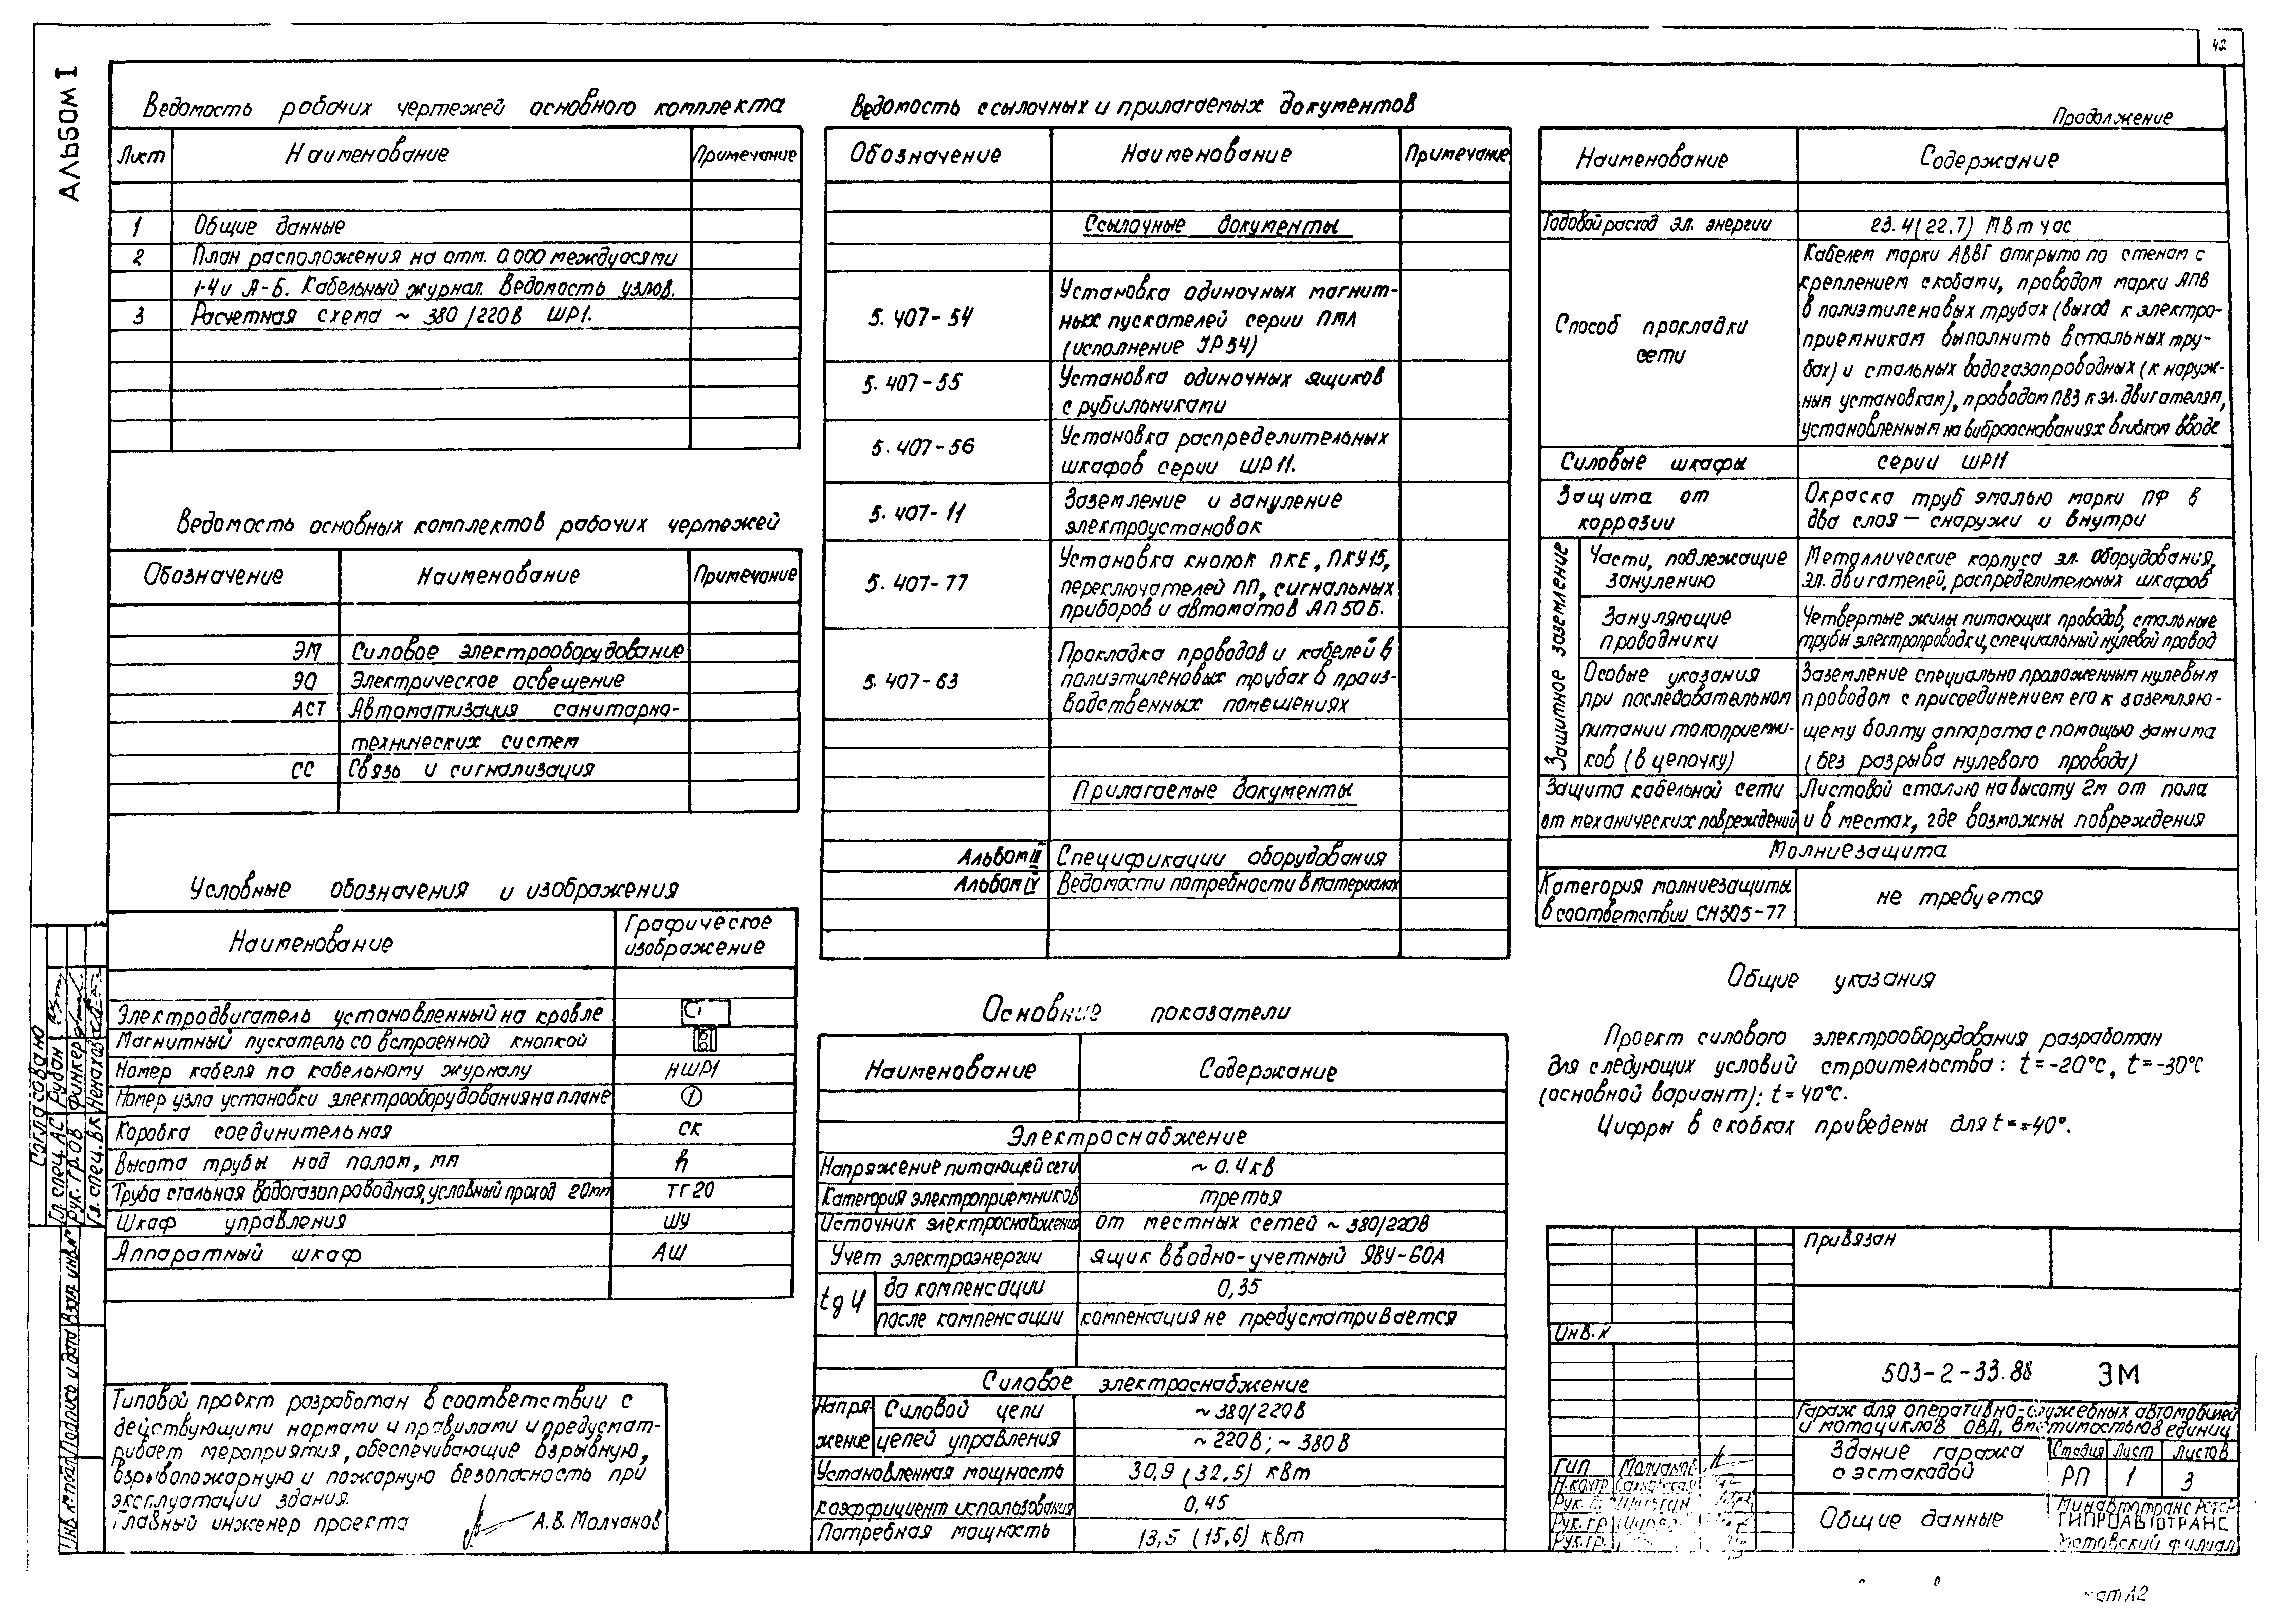 42
АЛЬБОМ I
Ведомость рабочих чертежей основного комплекта
Лист Наименование Примечание
1 Общие данные
2 План расположения на отм. 0.000 между осями
1-4 и А-Б. Кабельный журнал. Ведомость узлов.
3 Расчетная схема ~ 380/220В ШР1.
Ведомость основных комплектов рабочих чертежей
Обозначение Наименование Примечание
ЭМ Силовое электрооборудование
ЭО Электрическое освещение
АСТ Автоматизация санитарно-
технических систем
СС Связь и сигнализация
Условные обозначения и изображения
Наименование Графическое
изображение
Электродвигатель установленный на кровле
Магнитный пускатель со встроенной кнопкой
Номер кабеля по кабельному журналу НШР1
Номер узла установки электрооборудования на плане 1
Коробка соединительная СК
Высота трубы над полом, мм h
Труба стальная водогазопроводная, условный проход 20мм ТГ20
Шкаф управления ШУ
Аппаратный шкаф АШ
Типовой проект разработан в соответствии с
действующими нормами и правилами и предусмат-
ривает мероприятия, обеспечивающие взрывную,
взрывопожарную и пожарную безопасность при
эксплуатации здания.
Главный инженер проекта А.В. Молчанов
Ведомость ссылочных и прилагаемых документов
Обозначение Наименование Примечание
Ссылочные документы
5.407-54 Установка одиночных магнит-
ных пускателей серии ПМЛ
(исполнение УР54)
5.407-55 Установка одиночных ящиков
с рубильниками
5.407-56 Установка распределительных
шкафов серии ШР11.
5.407-11 Заземление и зануление
электроустановок
5.407-77 Установка кнопок ПКЕ, ПКУ15,
переключателей ПП, сигнальных
приборов и автоматов АП50Б.
5.407-63 Прокладка проводов и кабелей в
полиэтиленовых трубах в произ-
водственных помещениях
Прилагаемые документы
Альбом III Спецификации оборудования
Альбом IV Ведомости потребности в материалах
Основные показатели
Наименование Содержание
Электроснабжение
Напряжение питающей сети ~ 0.4кВ
Категория электроприемников третья
Источник электроснабжения от местных сетей ~ 380/220В
Учет электроэнергии ящик вводно-учетный ЯВУ-60А
tg φ до компенсации 0,35
после компенсации компенсация не предусматривается
Силовое электроснабжение
Напря-
жение
Силовой цепи ~380/220В
цепей управления ~220В; ~380В
Установленная мощность 30,9 (32,5) кВт
коэффициент использования 0,45
Потребная мощность 13,5 (15,6) кВт
Продолжение
Наименование Содержание
Годовой расход эл. энергии 23.4(22,7) МВт час
Способ прокладки
сети
Кабелем марки АВВГ открыто по стенам с
креплением скобами, проводом марки АПВ
в полиэтиленовых трубах (выход к электро-
приемникам выполнить в стальных тру-
бах) и стальных водогазопроводных (к наруж-
ным установкам), проводом ПВ3 к эл. двигателям,
установленным на виброоснованиях в гибком вводе
Силовые шкафы серии ШР11
Защита от
коррозии
Окраска труб эмалью марки ПФ в
два слоя — снаружи и внутри
Защитное заземление
Части, подлежащие
занулению
Металлические корпуса эл. оборудования,
эл. двигателей, распределительных шкафов
Зануляющие
проводники
Четвертые жилы питающих проводов, стальные
трубы электропроводки, специальный нулевой провод
Особые указания
при последовательном
питании токоприемни-
ков (в цепочку)
Заземление специально проложенным нулевым
проводом с присоединением его к заземляю-
щему болту аппарата с помощью зажима
(без разрыва нулевого провода)
Защита кабельной сети
от механических повреждений
Листовой сталью на высоту 2м от пола
и в местах, где возможны повреждения
Молниезащита
Категория молниезащиты
в соответствии СН305-77
не требуется
Общие указания
Проект силового электрооборудования разработан
для следующих условий строительства: t=-20°С, t=-30°С
(основной вариант); t=40°С.
Цифры в скобках приведены для t=-40°.
Привязан
Инв. N
503-2-33.88 ЭМ
Гараж для оперативно-служебных автомобилей
и мотоциклов ОВД, вместимостью 8 единиц
Здание гаража
с эстакадой
Стадия Лист Листов
РП 1 3
Общие данные
Минавтотранс РСФСР
ГИПРОАВТОТРАНС
Ростовский филиал
ГИП Молчанов
Н.контр
Рук.
Рук. гр.
Рук. гр.
Согласовано
Гл. спец. АС Рудан
Рук. гр. ОВ Финкер
Гл. спец. ВК Ненахов
Инв. № подл. Подпись и дата Взам. инв. №
А2